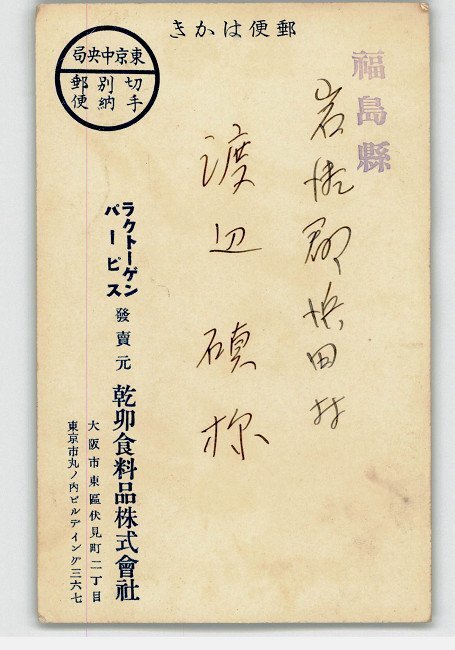 郵便はかき
東京中央局
切手
別納
郵便
福島縣
岩瀬郡浜田村
渡辺
ラクトーゲン
パーピス
發賣元
乾卯食料品株式會社
大阪市東區伏見町二丁目
東京市丸ノ内ビルデイング三六七